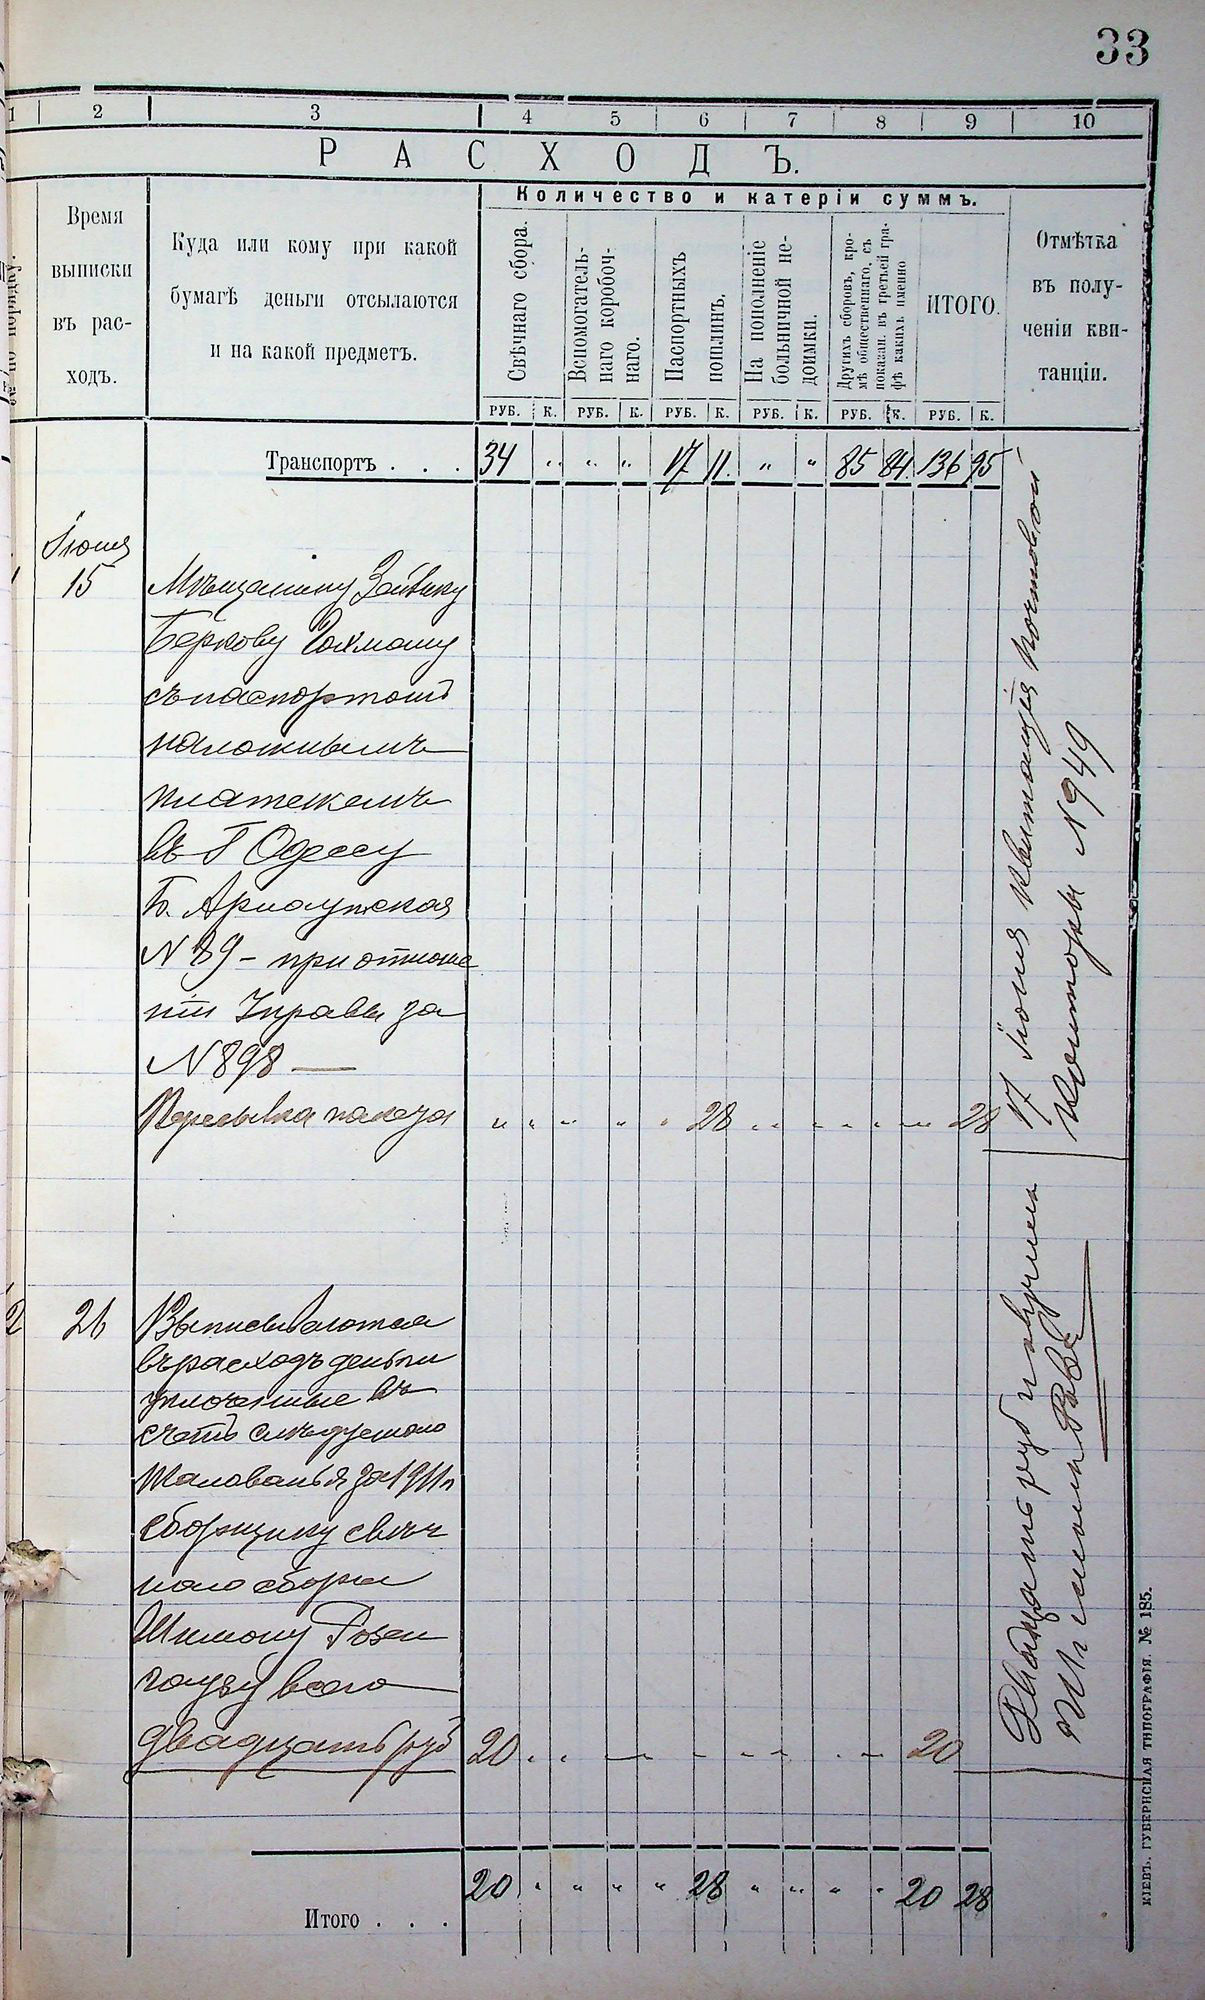 33
1 2 3 4 5 6 7 8 9 10
РАСХОДЪ.
Количество и катерiи суммъ.
№ по порядку.
Время
выписки
въ рас-
ходъ.
Куда или кому при какой
бумагѣ деньги отсылаются
и на какой предметъ.
Свѣчнаго сбора.
Вспомогатель-
наго коробоч-
наго.
Паспортныхъ
пошлинъ.
На пополненіе
больничной не-
доимки.
Другихъ сборовъ, кро-
мѣ общественнаго, съ
показан. въ третьей гра-
фѣ какихъ именно
ИТОГО.
Отмѣтка
въ полу-
ченіи кви-
танціи.
РУБ. К. РУБ. К. РУБ. К. РУБ. К. РУБ. К. РУБ. К.
Транспортъ . . . 34 " " " 17 11. " " 85 84. 136 95
Іюня
15 Мѣщанину Зейвику
Беркову Гохману
съ паспортомъ
наложнымъ
платежемъ
въ Г Одессу
Б. Арнаутская
N 89 - при отноше
ніи Управы за
N 898 —
Пересылка пакета " " " " " 28 " " " " " 28
17 Іюня квитанція почтовой
Конторы N 949
2 26 Выписываются
въ расходъ деньги
уплоченные въ
счетъ слѣдуемаго
Жалованья за 1911 г
сборщику свѣч
наго сбора
Шимону Розен
гаузу всего
двадцать руб 20 " " — " " " " " — 20
Двадцать руб получилъ
Шимонъ
Итого . . . 20 " " " " 28 " " " " 20 28
КІЕВЪ. ГУБЕРНСКАЯ ТИПОГРАФІЯ. № 185.